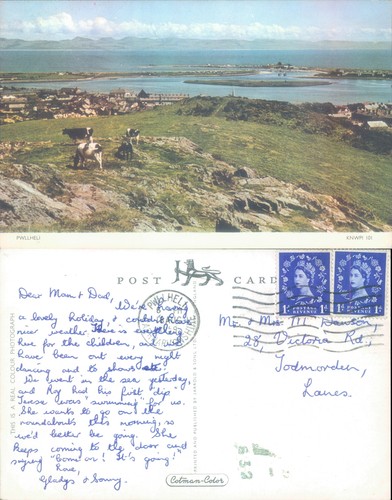 PWLLHELI
KNWPl 101
POST CARD
PWLLHELI
1d POSTAGE REVENGE 1d
Dear Mam & Dad,
We're having
a lovely holiday, & couldn't have
nicer weather. There is everything
here for the children, and we
have been out every night
dancing and to shows etc.
We went in the sea yesterday,
and Roy had his first dip
Teresa was "swimming" for us.
She wants to go on the
roundabouts this morning, so
we'd better be going. She
keeps coming to the door and
saying "Come on! It's going"
Love,
Gladys & Sonny.
Mr & Mrs Dawson,
28, Victoria Rd,
Todmorden,
Lancs.
THIS IS A REAL COLOUR PHOTOGRAPH
PRINTED AND PUBLISHED BY
Colman-Color